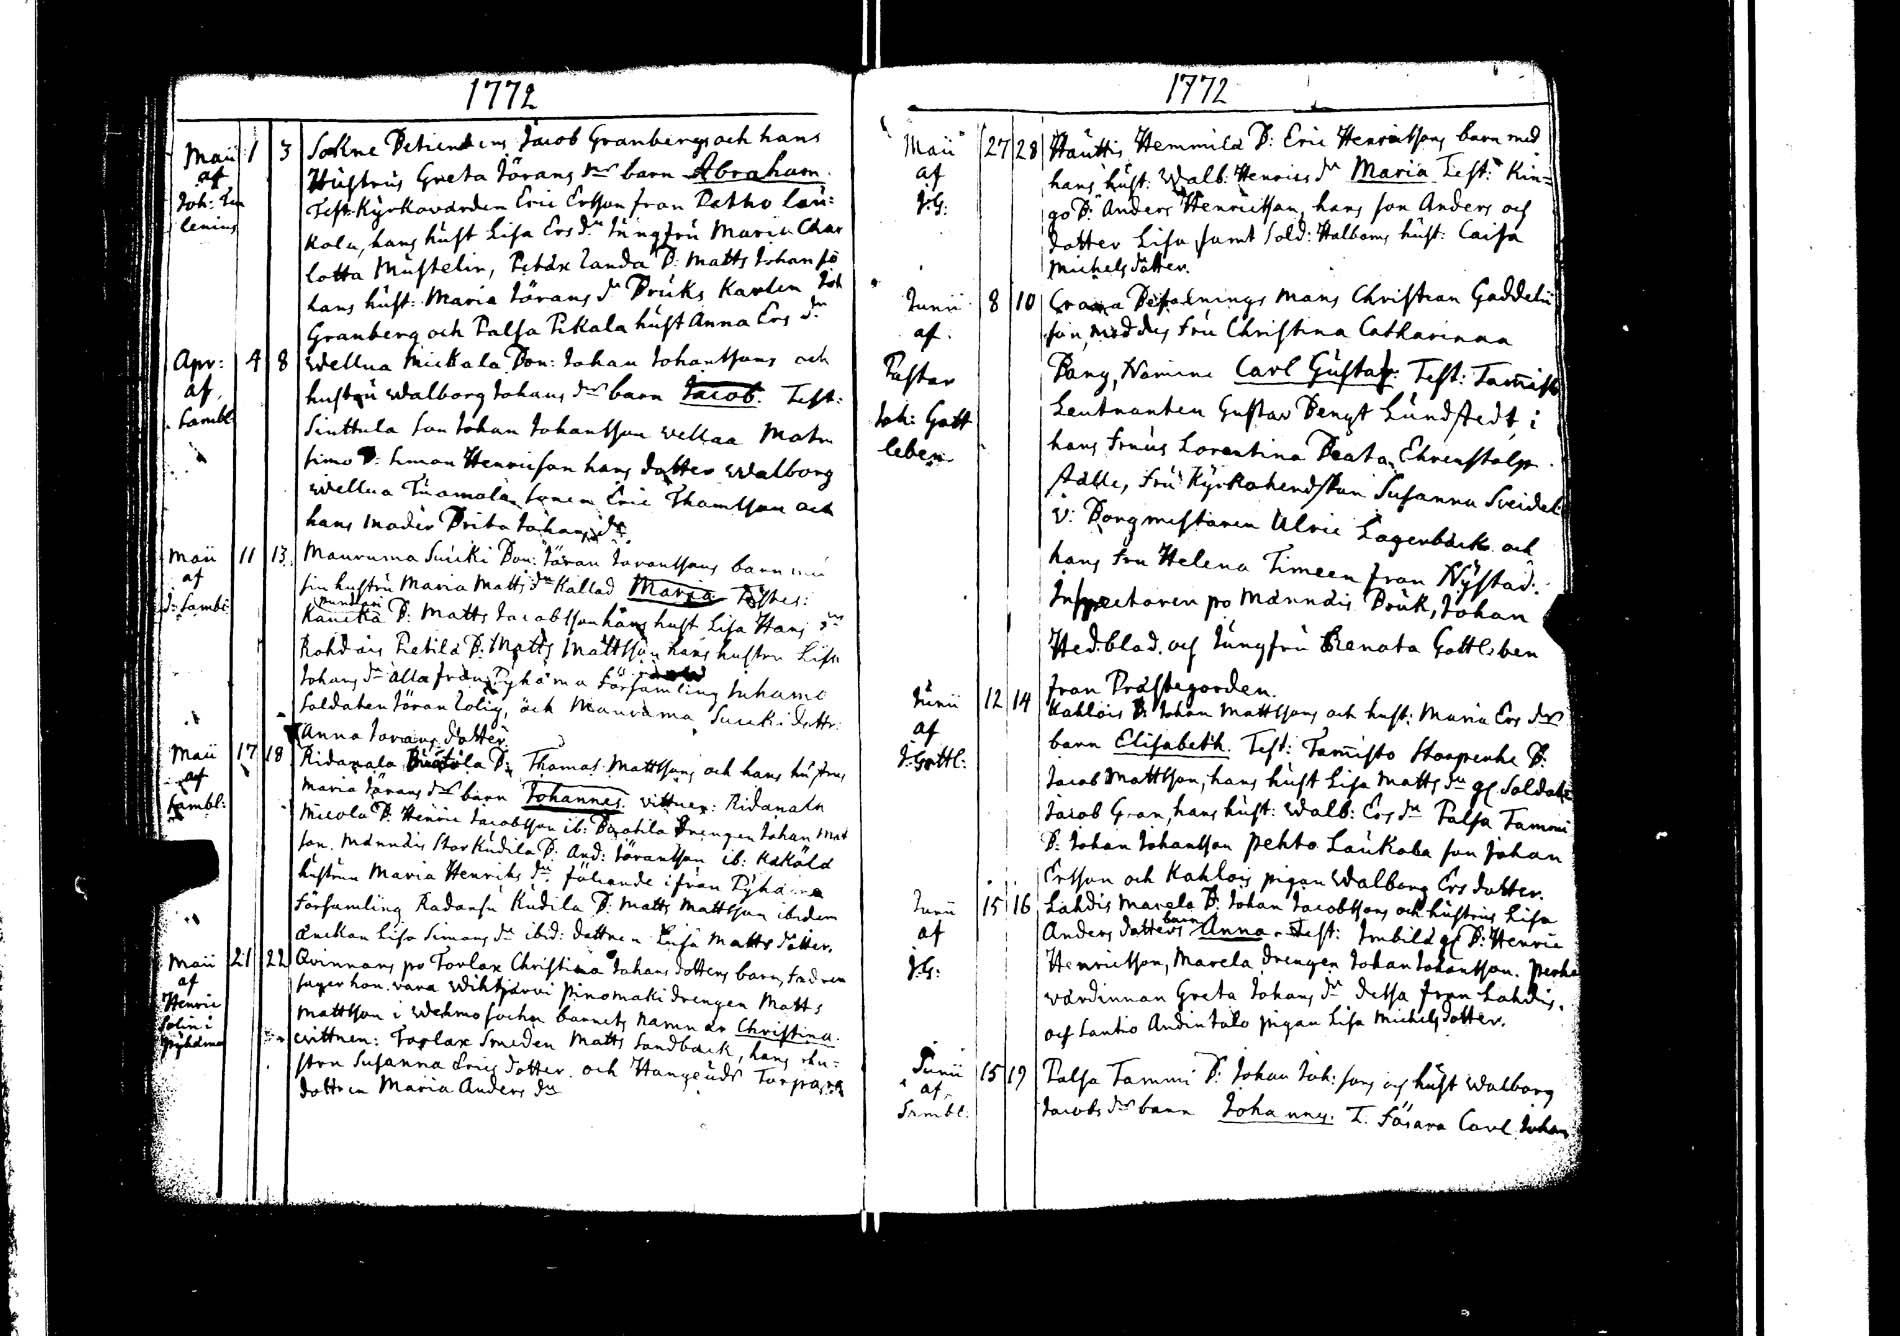 1772
Maii 1 3 Sokne Betienens Jacob Granbergs och hans
af Hustrus Greta Jörans drs barn Abraham.
Joh: Len Test: Kyrkovärden Eric Ersson från Pehto Lau:
lenius kola, hans hust Lisa Ers dr Jungfru Maria Char
lotta Mustelin, Petäx Landa B: Matts Johans so
hans hust: Maria Jörans dr Bruks Karlen Joh
Granberg och Palsa Pikala hust Anna Ers dr
Apr: 4 8 Wellua Mickala Bon: Johan Johantsons och
af hustru Walborg Johans drs barn Jacob. Test:
Lambl: Sinttula Son Johan Johantsson Wellaa Matn
simo B: Simon Henricson hans dotter Walborg
Wellua Tuomala sonen Eric Thomtson och
hans moder Brita Johans dr
Maii 11 13. Mauruma Suicki Bon: Jöran Jörantsons barn
af sin hustru Maria Matts dr Kallad Maria Testes:
J: Lambl: Kaucka B: Matts Jacobsson hans hust Lisa Hans dr
Rohdais Pietilä B: Matts Mattsson hans hustru Lisa
Johans dr alla från Pyhäma Församling Juhamo
Soldaten Jöran Rolig, och Mauruma Suicki dottr:
Anna Jörans dotter
Maii 17 18 Ridanala B: Thomas Mattsons och hans hustrus
af Maria Jörans drs barn Johannes. vittner: Ridanala
Lambl: Micola B: Henric Jacobsson ib: drengen Johan Mat
son. Männäis Stor Kudila B: And: Jörantson ib: Kaköla
hustrun Maria Henriks dr följande ifrån Pyhäma
Församling Radansu Kudila B: Matts Mattsson ibidem
Enckan Lisa Simons dr ibid: dottren Lisa Matts dotter.
Maii 21 22 Qvinnans po Torlax Christina Johans dotters barn, fadren
af säger hon vara Wihtjärvi Pinomäki drengen Matts
Henric Mattsson i Wehmo sochn barnets namn är Christina.
Solin i vittnen: Torlax Smeden Matts Sandback, hans hu=
Pyhäma stru Susanna Erics dotter. och Hangeuds Torpare
dottren Maria Anders dr
1772
Maii 27 28 Hauttis Hemmilä B: Eric Henrictsons barn med
af hans hust: Walb: Henrics dr Maria Test: Kin=
J:G: go B: Anders Henrictsson, hans son Anders och
dotter Lisa, samt Sold: Halboms hust: Caisa
Michels dotter.
Junii 8 10 Crono Befalnings mans Christian Gaddelii
af. son, med des fru Christina Catharinna
Pastor Bang, Namine Carl Gustaf: Test: Tamisto
Joh: Gott Leutnanten Gustav Bengt Lundstedt, i
leben. hans Frus Lorentina Beata Ehrenstolpe
ställe, fru Kyrkoherdskan Susanna Sveidel:
v: Borgmestaren Ulric Lagerbäck och
hans fru Helena Timeen från Nystad.
Inspectoren po Männäis Bruk, Johan
Hedblad. och Jungfru Renata Gottleben
från Prästegorden.
Junii 12 14 Kahlois B: Johan Mattsons och hust: Maria Ers drs
af barn Elisabeth. Test: Tamisto Haapenhe B:
J.Gottl: Jacob Mattsson, hans hust Lisa Matts dr gl Soldate
Jacob Gran, hans hust: Walb: Ers dr Palsa Tammi
B: Johan Johantsson Pehto Laukola son Johan
Ersson och Kahlois pigan Walborg Ers dotter.
Junii 15 16 Lahdis Marela B: Johan Jacobsons och hustrus Lisa
af Anders dotters barn Anna. Test: Imbilä gl B: Henric
J.G: Henrictsson, Marela drengen Johan Johantsson. perho
värdinnan Greta Johans dr dessa från Lahdis.
och Santio Andin talo pigan Lisa Michels dotter.
Junii 15 19 Palsa Tammi B: Johan Joh: sons och hust Walborg
af Jacobs drs barn Johannes. T. Fäsara Carl Johan
Lambl: